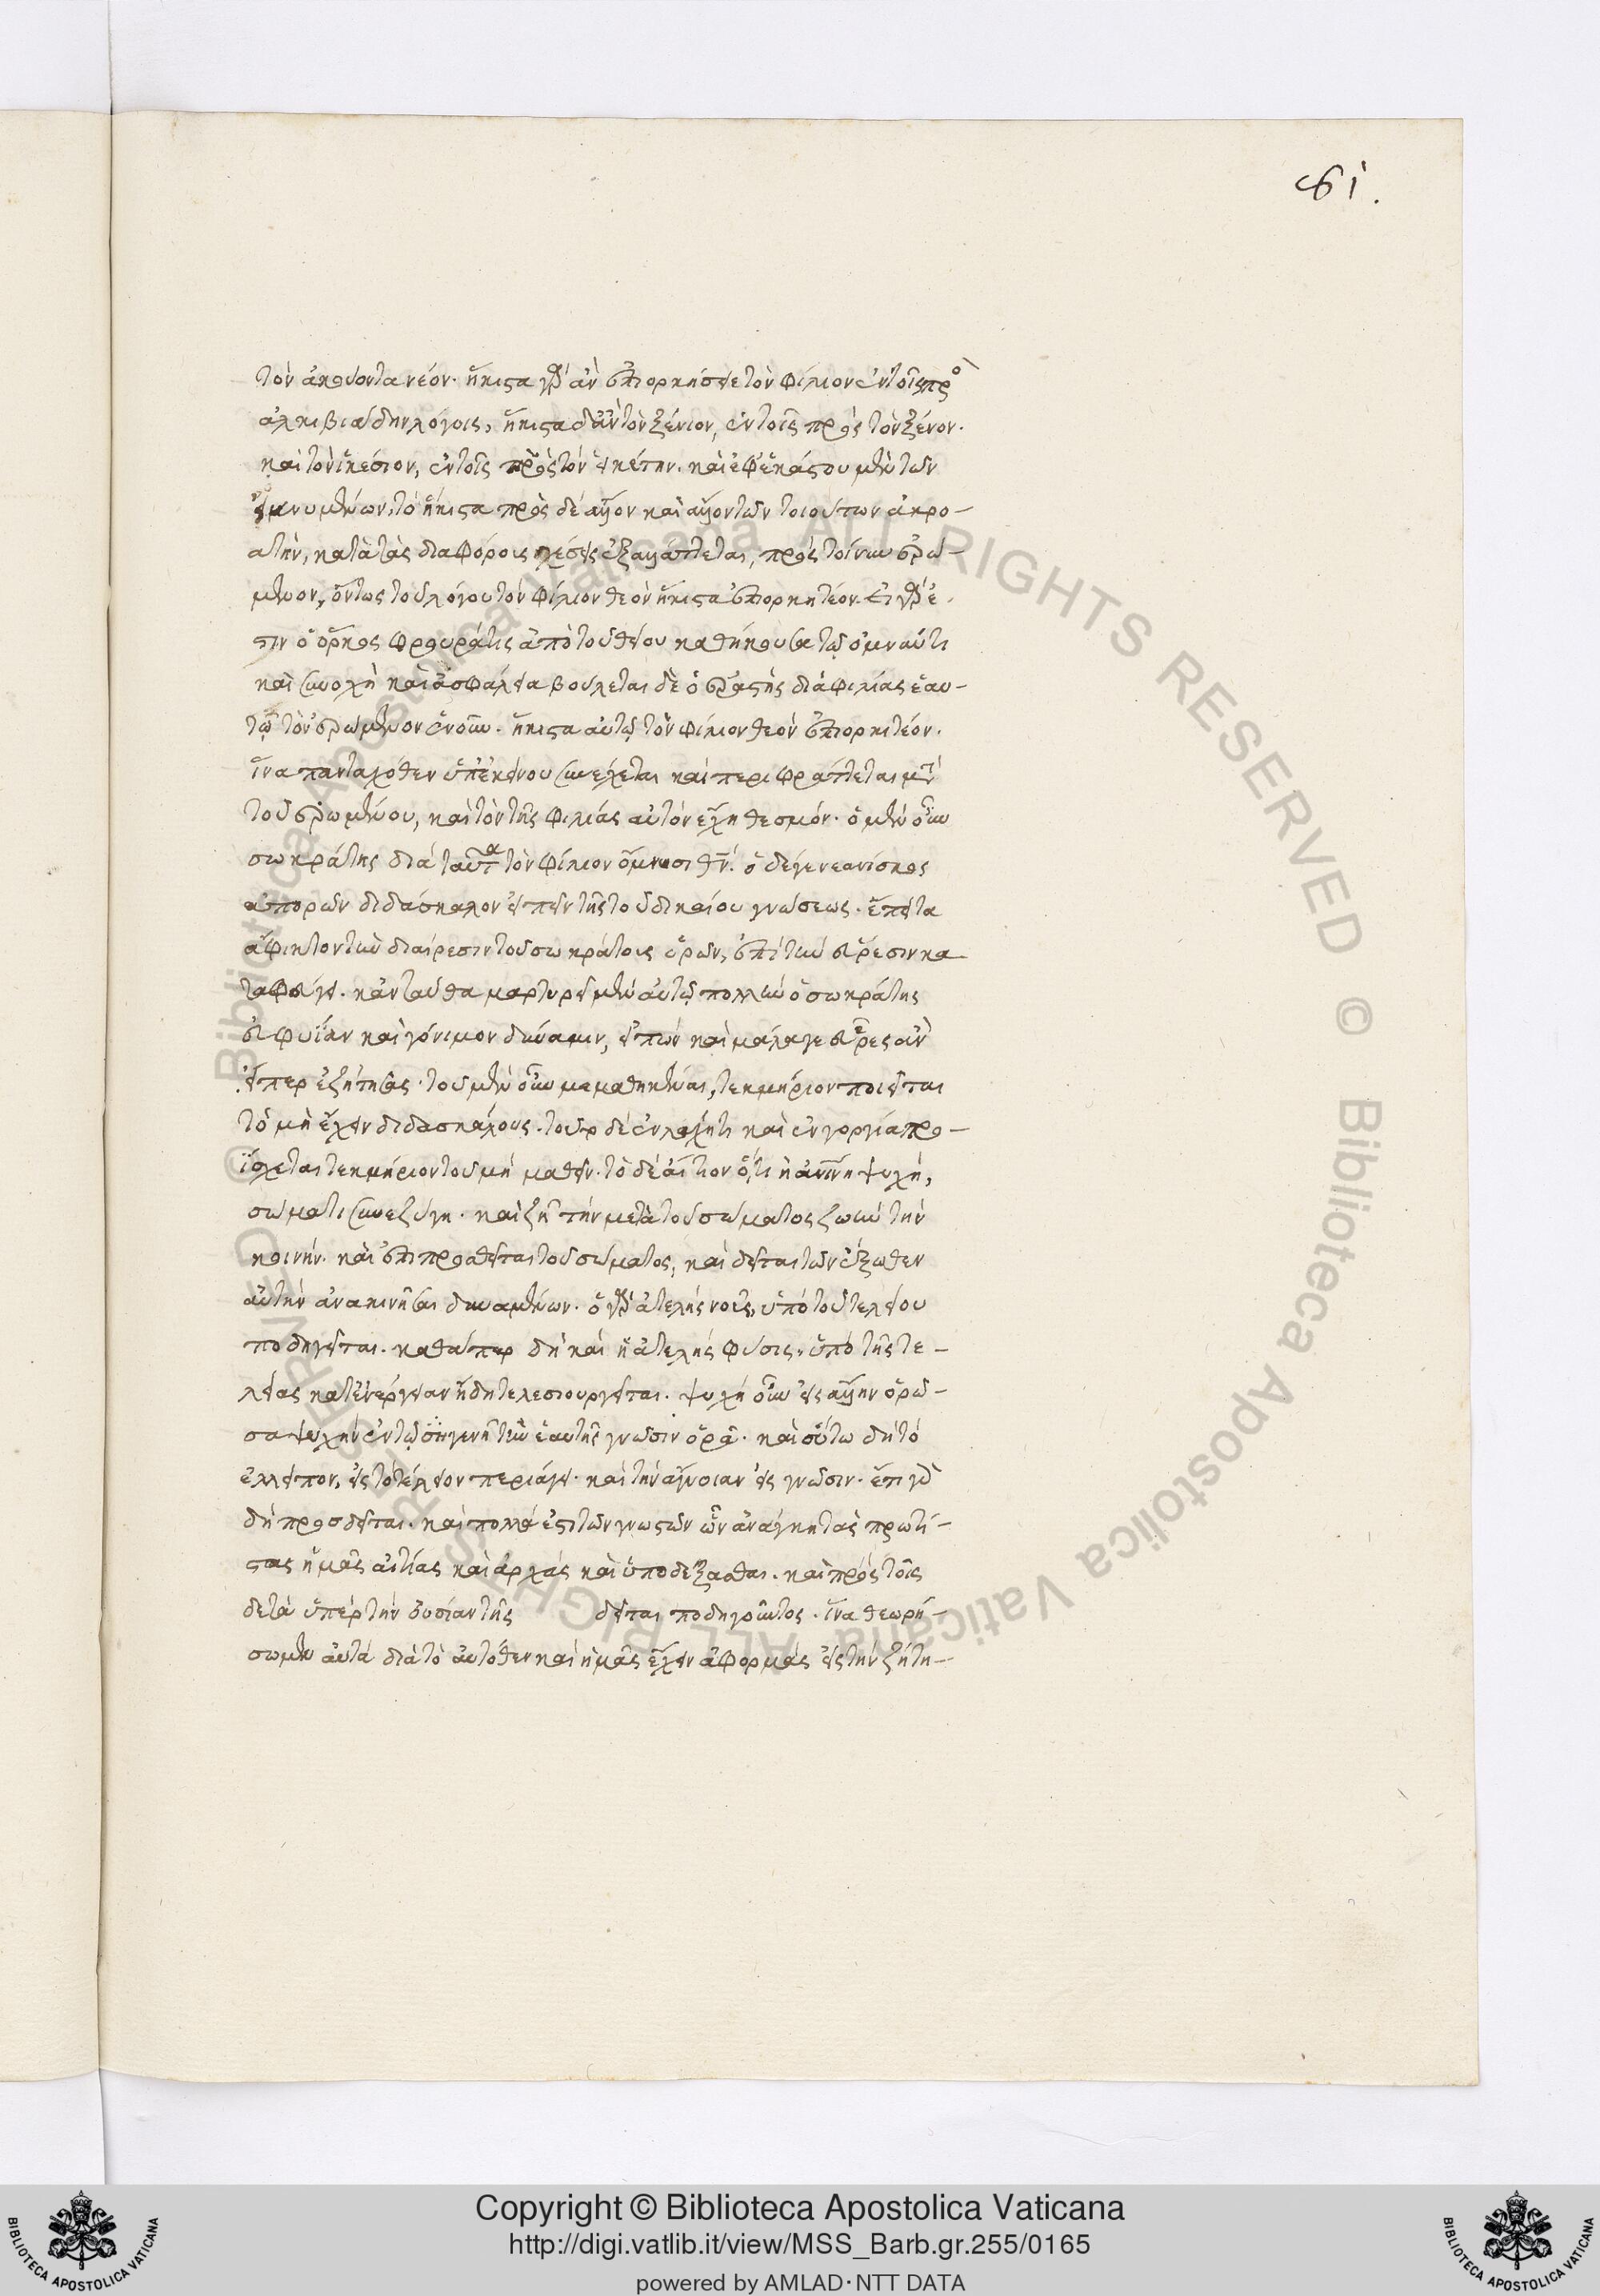 61.
τὸν ἀκούοντα νέον. ἥκιστα γὰρ ἂν ἐπιορκήσειε τὸν φίλιον ἐν τοῖς πρὸ
ἀλκιβιάδην λόγοις, ἥκιστα δ' ἂν τὸν ξένιον, ἐν τοῖς πρὸς τὸν ξένον.
καὶ τὸν ἱκέσιον, ἐν τοῖς πρὸς τὸν ἱκέτην. καὶ ἐφ' ἑκάστου μὲν τῶν
ὀμνυμένων, τὸ ἥκιστα πρὸς δὲ ἄλλον καὶ ἄλλον τῶν τοιούτων ἀκρο-
ατὴν, κατὰ τὰς διαφόροις σχέσεις ἐξαλλάττεται, πρὸς τοίνυν ἐρώ-
μενον, ὄντως τοῦ λόγου τὸν φίλιον θεὸν ἥκιστα ἐπιορκητέον. εἰ γὰρ ἐ-
στιν ὁ ὅρκος φρουρά τις ἀπὸ τοῦ θείου καθήκουσα τῷ ὀμνύντι
καὶ συνοχὴ καὶ ἀσφάλεια βούλεται δὲ ὁ ἐραστὴς διὰ φιλίας ἑαυ-
τῷ τὸν ἐρώμενον ἑνοῦν. ἥκιστα αὐτῷ τὸν φίλιον θεὸν ἐπιορκιτέον.
ἵνα πανταχόθεν ὑπ' ἐκείνου συνέχεται καὶ περιφράττεται μετὰ
τοῦ ἐρωμένου, καὶ τὸν τῆς φιλίας αὐτὸν ἔχη θεσμόν. ὁ μὲν οὖν
σωκράτης διὰ ταῦτα τὸν φίλιον ὄμνυσι θν. ὁ δέ γε νεανίσκος
ἀπορῶν διδάσκαλον εἰπεῖν τῆς τοῦ δικαίου γνώσεως. ἔπειτα
ἄφικτον τὴν διαίρεσιν τοῦ σωκράτους ὁρῶν, ἐπὶ τὴν εὕρεσιν κα
ταφεύγει. κἀνταῦθα μαρτυρεῖ μὲν αὐτῷ πολλὴν ὁ σωκράτης
εὐφυΐαν καὶ γόνιμον δύναμιν, εἰπὼν καὶ μάλα γε εὗρες ἂν
εἴπερ ἐζήτησας. τοῦ μὲν οὖν μεμαθηκέναι, τεκμήριον ποιεῖται
τὸ μὴ ἔχειν διδασκάλους. τοῦ δὲ ἐν λάχητι καὶ ἐν γοργία προ-
ΐσχεται τεκμήριον τοῦ μὴ μαθεῖν. τὸ δὲ αἴτιον ὅτι ἡ ἀνίνη ψυχὴ,
σώματι συνεζύγη. καὶ ζῇ τὴν μετὰ τοῦ σώματος ζωὴν τὴν
κοινήν. καὶ ἐπιπροσθεῖται τοῦ σώματος, καὶ δεῖται τῶν ἔξωθεν
αὐτὴν ἀνακινῆσαι δυναμένων. ὁ γὰρ ἀτελὴς νοῦς, ὑπὸ τοῦ τελείου
ποδηγεῖται. καθάπερ δὴ καὶ ἡ ἀτελὴς φύσις, ὑπὸ τῆς τε-
λείας κατ' ἐνέργειαν ἤδη τελεσιουργεῖται. ψυχὴ οὖν εἰς ἄλλην ὁρῶ-
σα ψυχὴν ἐν τῷ συγγενῇ τὴν ἑαυτῆς γνῶσιν ὁρᾷ. καὶ οὕτω δὴ τὸ
ἐλλεῖπον, εἰς τὸ τέλειον περιάγει. καὶ τὴν ἄγνοιαν εἰς γνῶσιν. ἔτι γὰρ
δὴ προσδεῖται. καὶ πολλά ἐστι τῶν γνωστῶν ὧν ἀνάγκη τὰς πρωτί-
στας ἡμᾶς αἰτίας καὶ ἀρχὰς καὶ ὑποδέξασθαι. καὶ πρὸς τοῖς
δε τὰ ὑπὲρ τὴν οὐσίαν τῆς δεῖται ποδηγοῦντος. ἵνα θεωρή-
σωμεν αὐτὰ διὰ τὸ αὐτόθεν καὶ ἡμᾶς ἔχειν ἀφορμὰς εἰς τὴν ζήτη-
© Biblioteca Apostolica Vaticana ALL RIGHTS RESERVED © Biblioteca Apostolica Vaticana ALL RIGHTS RESERVED
Copyright © Biblioteca Apostolica Vaticana
http://digi.vatlib.it/view/MSS_Barb.gr.255/0165
powered by AMLAD·NTT DATA
BIBLIOTECA APOSTOLICA VATICANA
BIBLIOTECA APOSTOLICA VATICANA